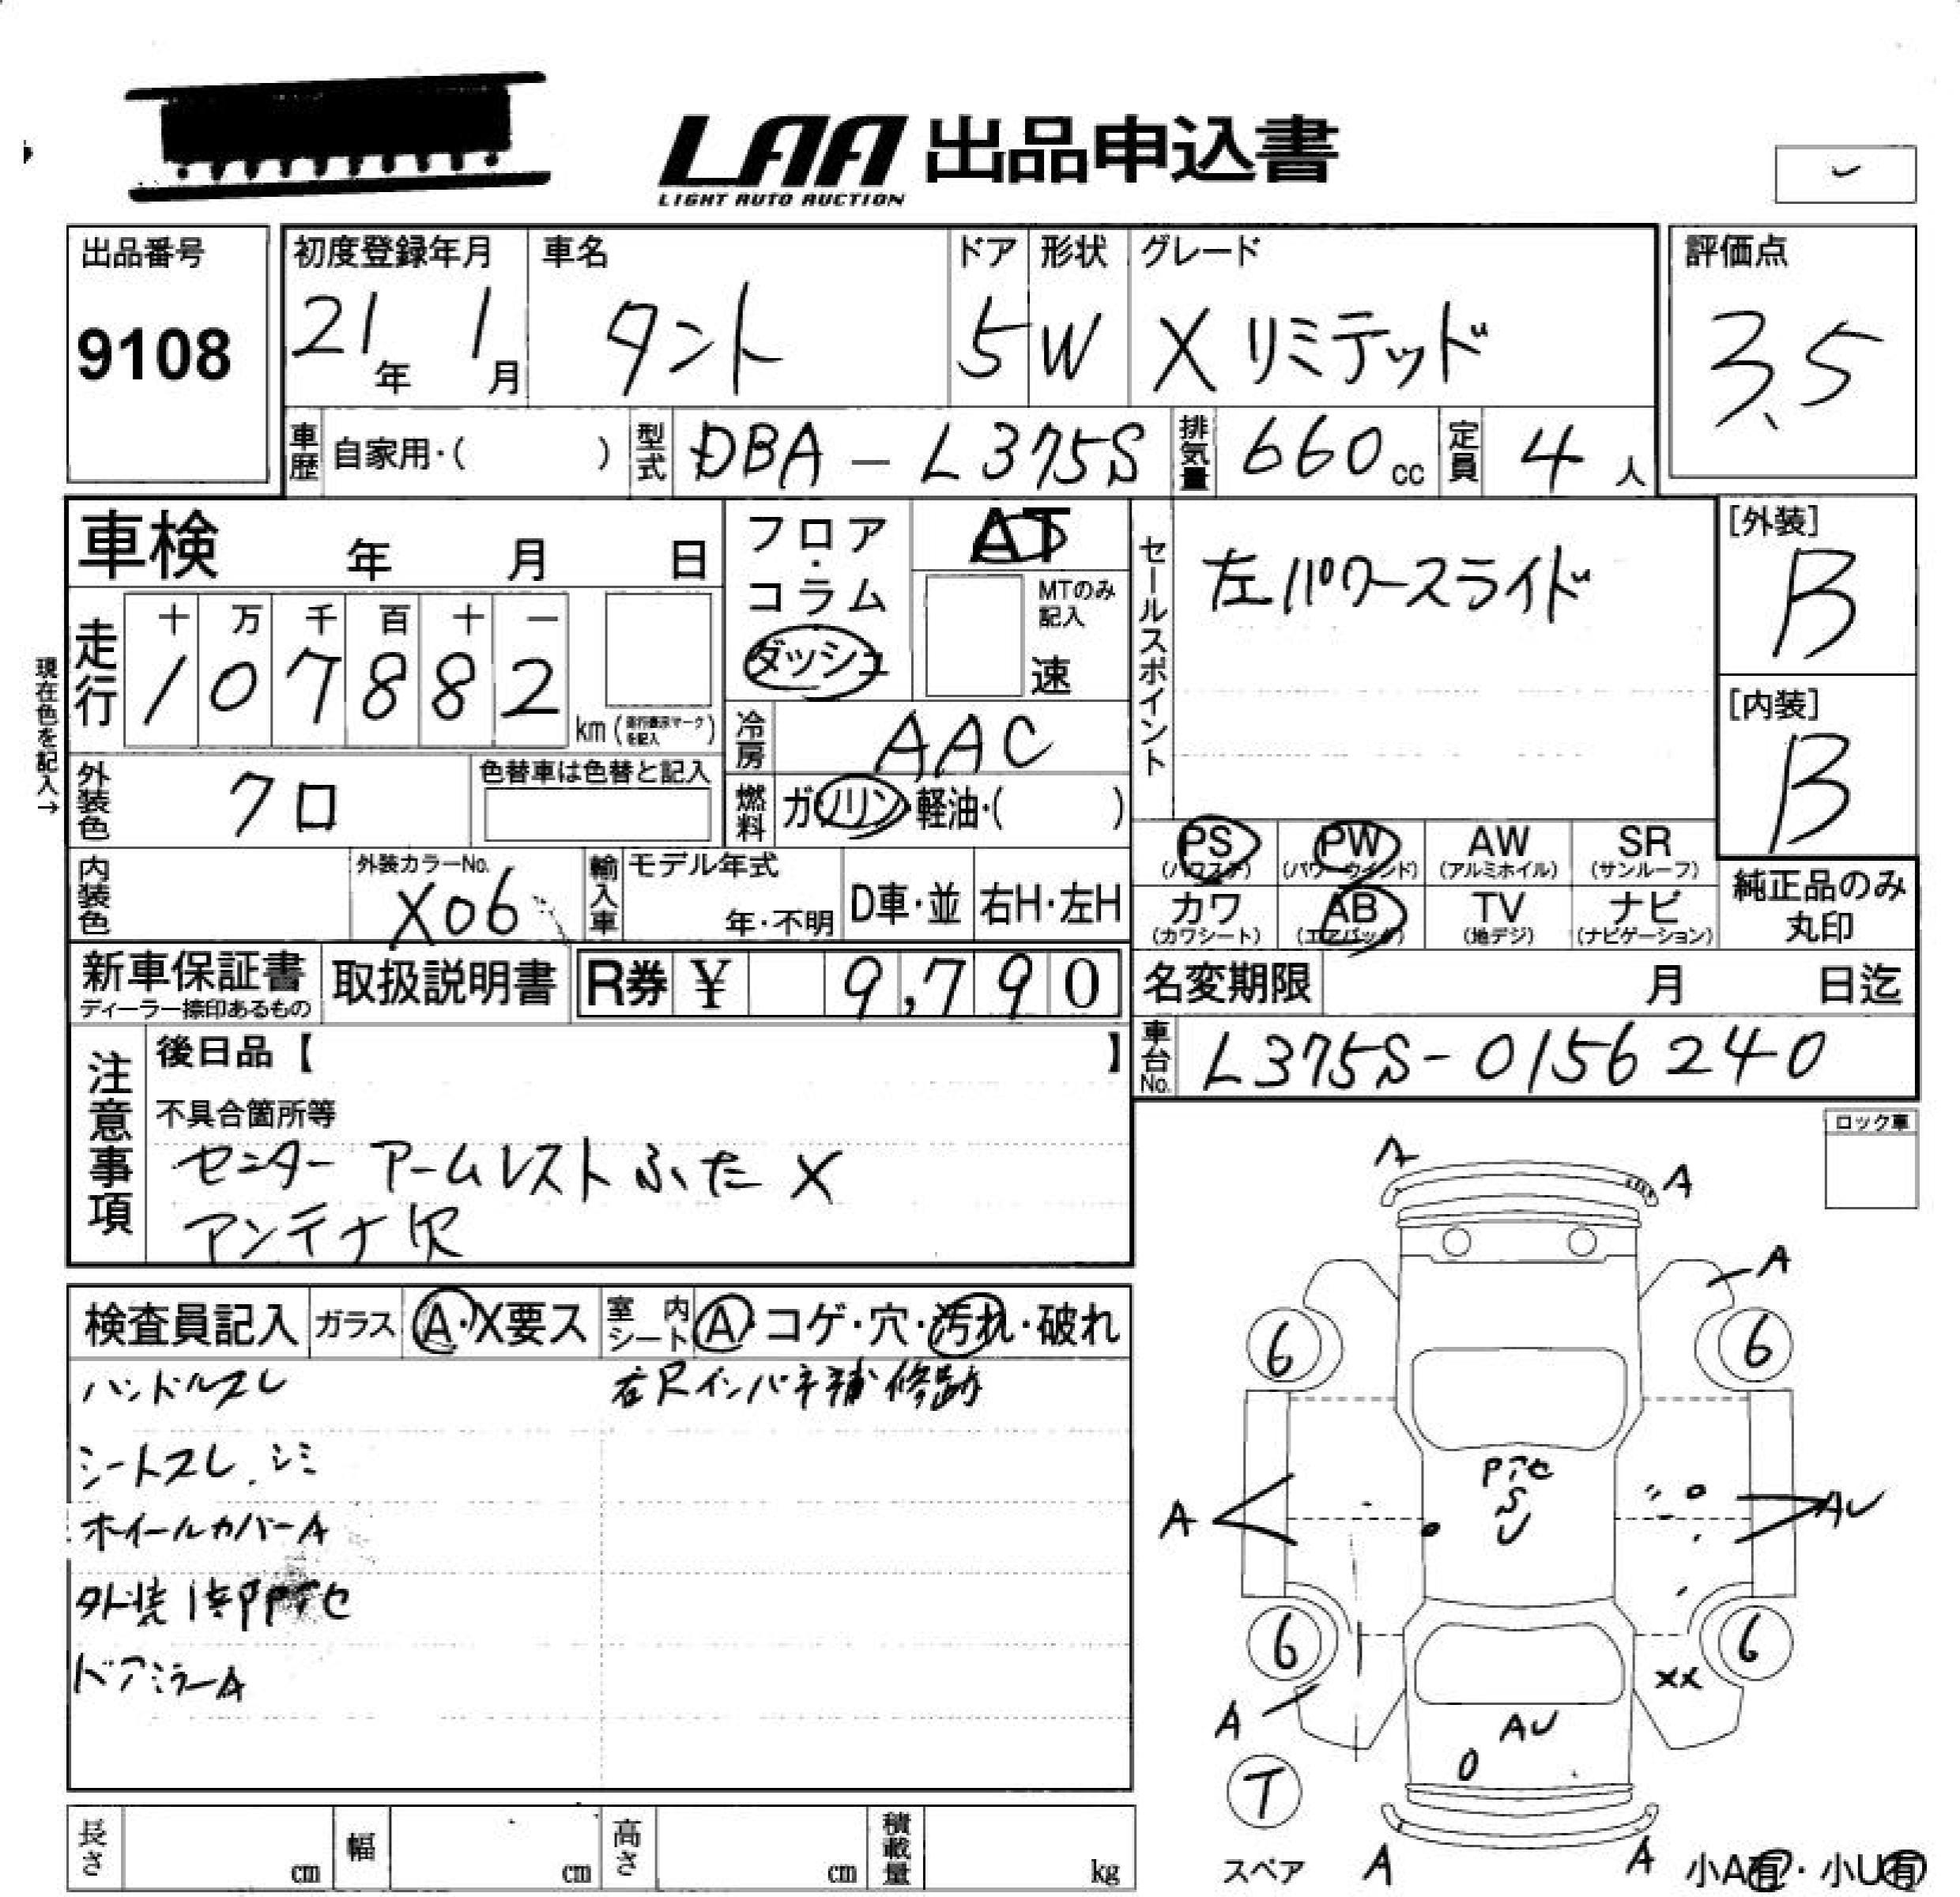 LAA 出品申込書
LIGHT AUTO AUCTION
出品番号
9108
初度登録年月
21年 1月
車名
タント
ドア
5
形状
W
グレード
X リミテッド
評価点
3.5
車歴 自家用・( )
型式 DBA - L375S
排気量 660cc
定員 4人
車検 年 月 日
フロア・コラム
ダッシュ
AT
MTのみ記入
速
セールスポイント
左パワースライド
[外装]
B
[内装]
B
現在色を記入→
走行
十 万 千 百 十 一
1 0 7 8 8 2
km (走行表示マークを記入)
冷房 AAC
外装色 クロ
色替車は色替と記入
燃料 ガソリン・軽油・( )
内装色
外装カラーNo.
X06
輸入車 モデル年式
年・不明
D車・並
右H・左H
PS (パワステ)
PW (パワーウインド)
AW (アルミホイル)
SR (サンルーフ)
カワ (カワシート)
AB (エアバック)
TV (地デジ)
ナビ (ナビゲーション)
純正品のみ丸印
新車保証書
ディーラー捺印あるもの
取扱説明書
R券 ¥ 9,790
名変期限 月 日迄
車台No. L375S-0156240
注意事項
後日品【 】
不具合箇所等
センターアームレストふた X
アンテナ欠
ロック車
検査員記入
ガラス A・X要ス
室内シート A・コゲ・穴・汚れ・破れ
ハンドルスレ
右Rインパネ補修跡
シートスレ、シミ
ホイールカバーA
外装1部Pアセ
ドアミラーA
A
A
A
6
6
Pアセ
S
U
A
AU
6
6
XX
A
AU
T
スペア
A
A
小A有・小U有
長さ cm
幅 cm
高さ cm
積載量 kg